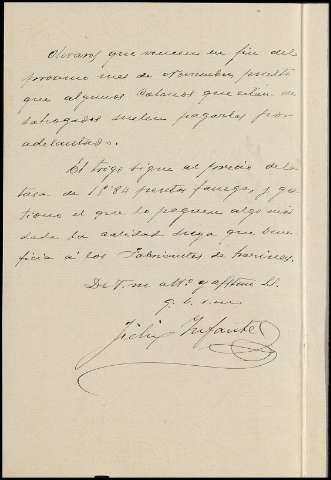 Olivares que vencen en fin del
proximo mes de Noviembre, puesto
que algunos Colonos que están de
satrasados suelen pagarlas por
adelantado.
El trigo sigue al precio de la
tasa de 19'84 pesetas fanega, y ges
tiono el que lo paguen algo más
dada la calidad suya que bene
ficia á los fabricantes de harinas.
De V. m afmo y affmo S.
q. b. s. m.
Felix Infante